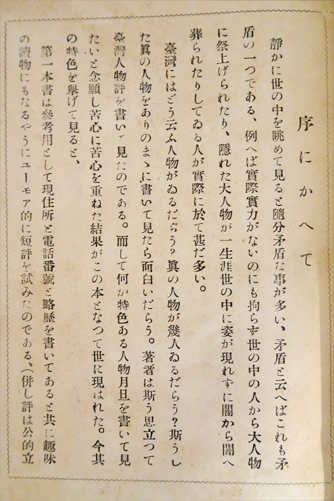 序にかへて
靜かに世の中を眺めて見ると隨分矛盾な事が多い、矛盾と云へばこれも矛
盾の一つである、例へば實際實力がないのにも拘らず世の中の人から大人物
に祭上げられたり、隱れた大人物が一生涯世の中に姿が現れずに闇から闇へ
葬られたりしてゐる人が實際に於て甚だ多い。
臺灣にはどう云ふ人物がゐるだらう?眞の人物が幾人ゐるだらう?斯うし
た眞の人物をありのまゝに書いて見たら面白いだらう。著者は斯う思立つて
臺灣人物評を書いて見たのである。而して何か特色ある人物月旦を書いて見
たいと念願し苦心に苦心を重ねた結果がこの本となつて世に現はれた。今其
の特色を擧げて見ると、
第一本書は參考用として現住所と電話番號と略歷を書いてあると共に趣味
の讀物にもなるやうにユーモア的に短評を試みたのである、(併し評は公的立